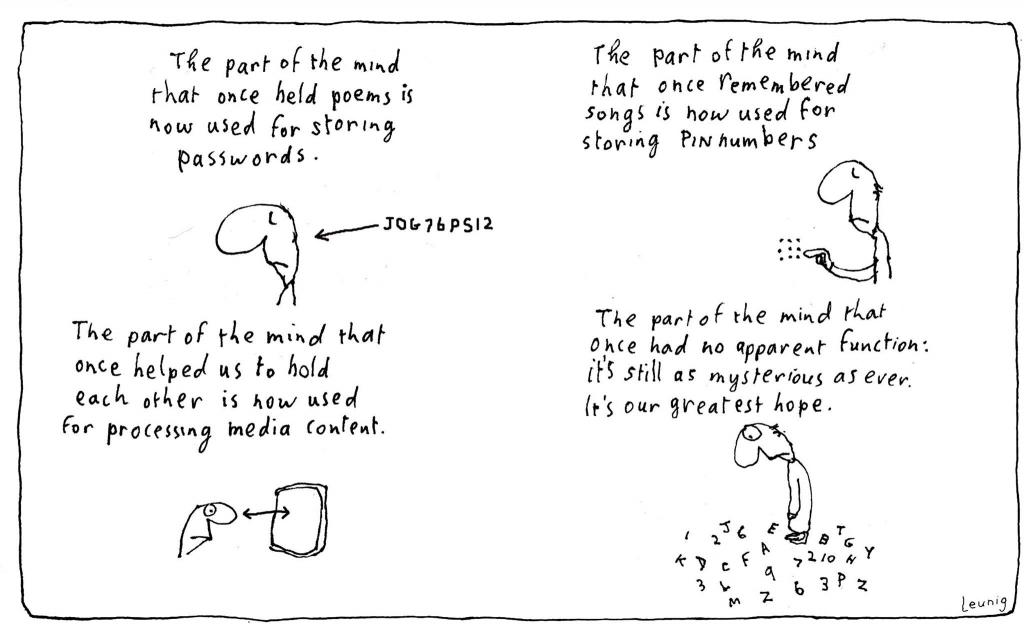 The part of the mind
that once held poems is
now used for storing
passwords.
JOG76PS12
The part of the mind
that once remembered
songs is now used for
storing PIN numbers
The part of the mind that
once helped us to hold
each other is now used
for processing media content.
The part of the mind that
once had no apparent function:
it's still as mysterious as ever.
It's our greatest hope.
1 2 J 6 E B T G
K D C F A 7 2 10 N Y
3 L 9 6 3 P Z
M Z
Leunig